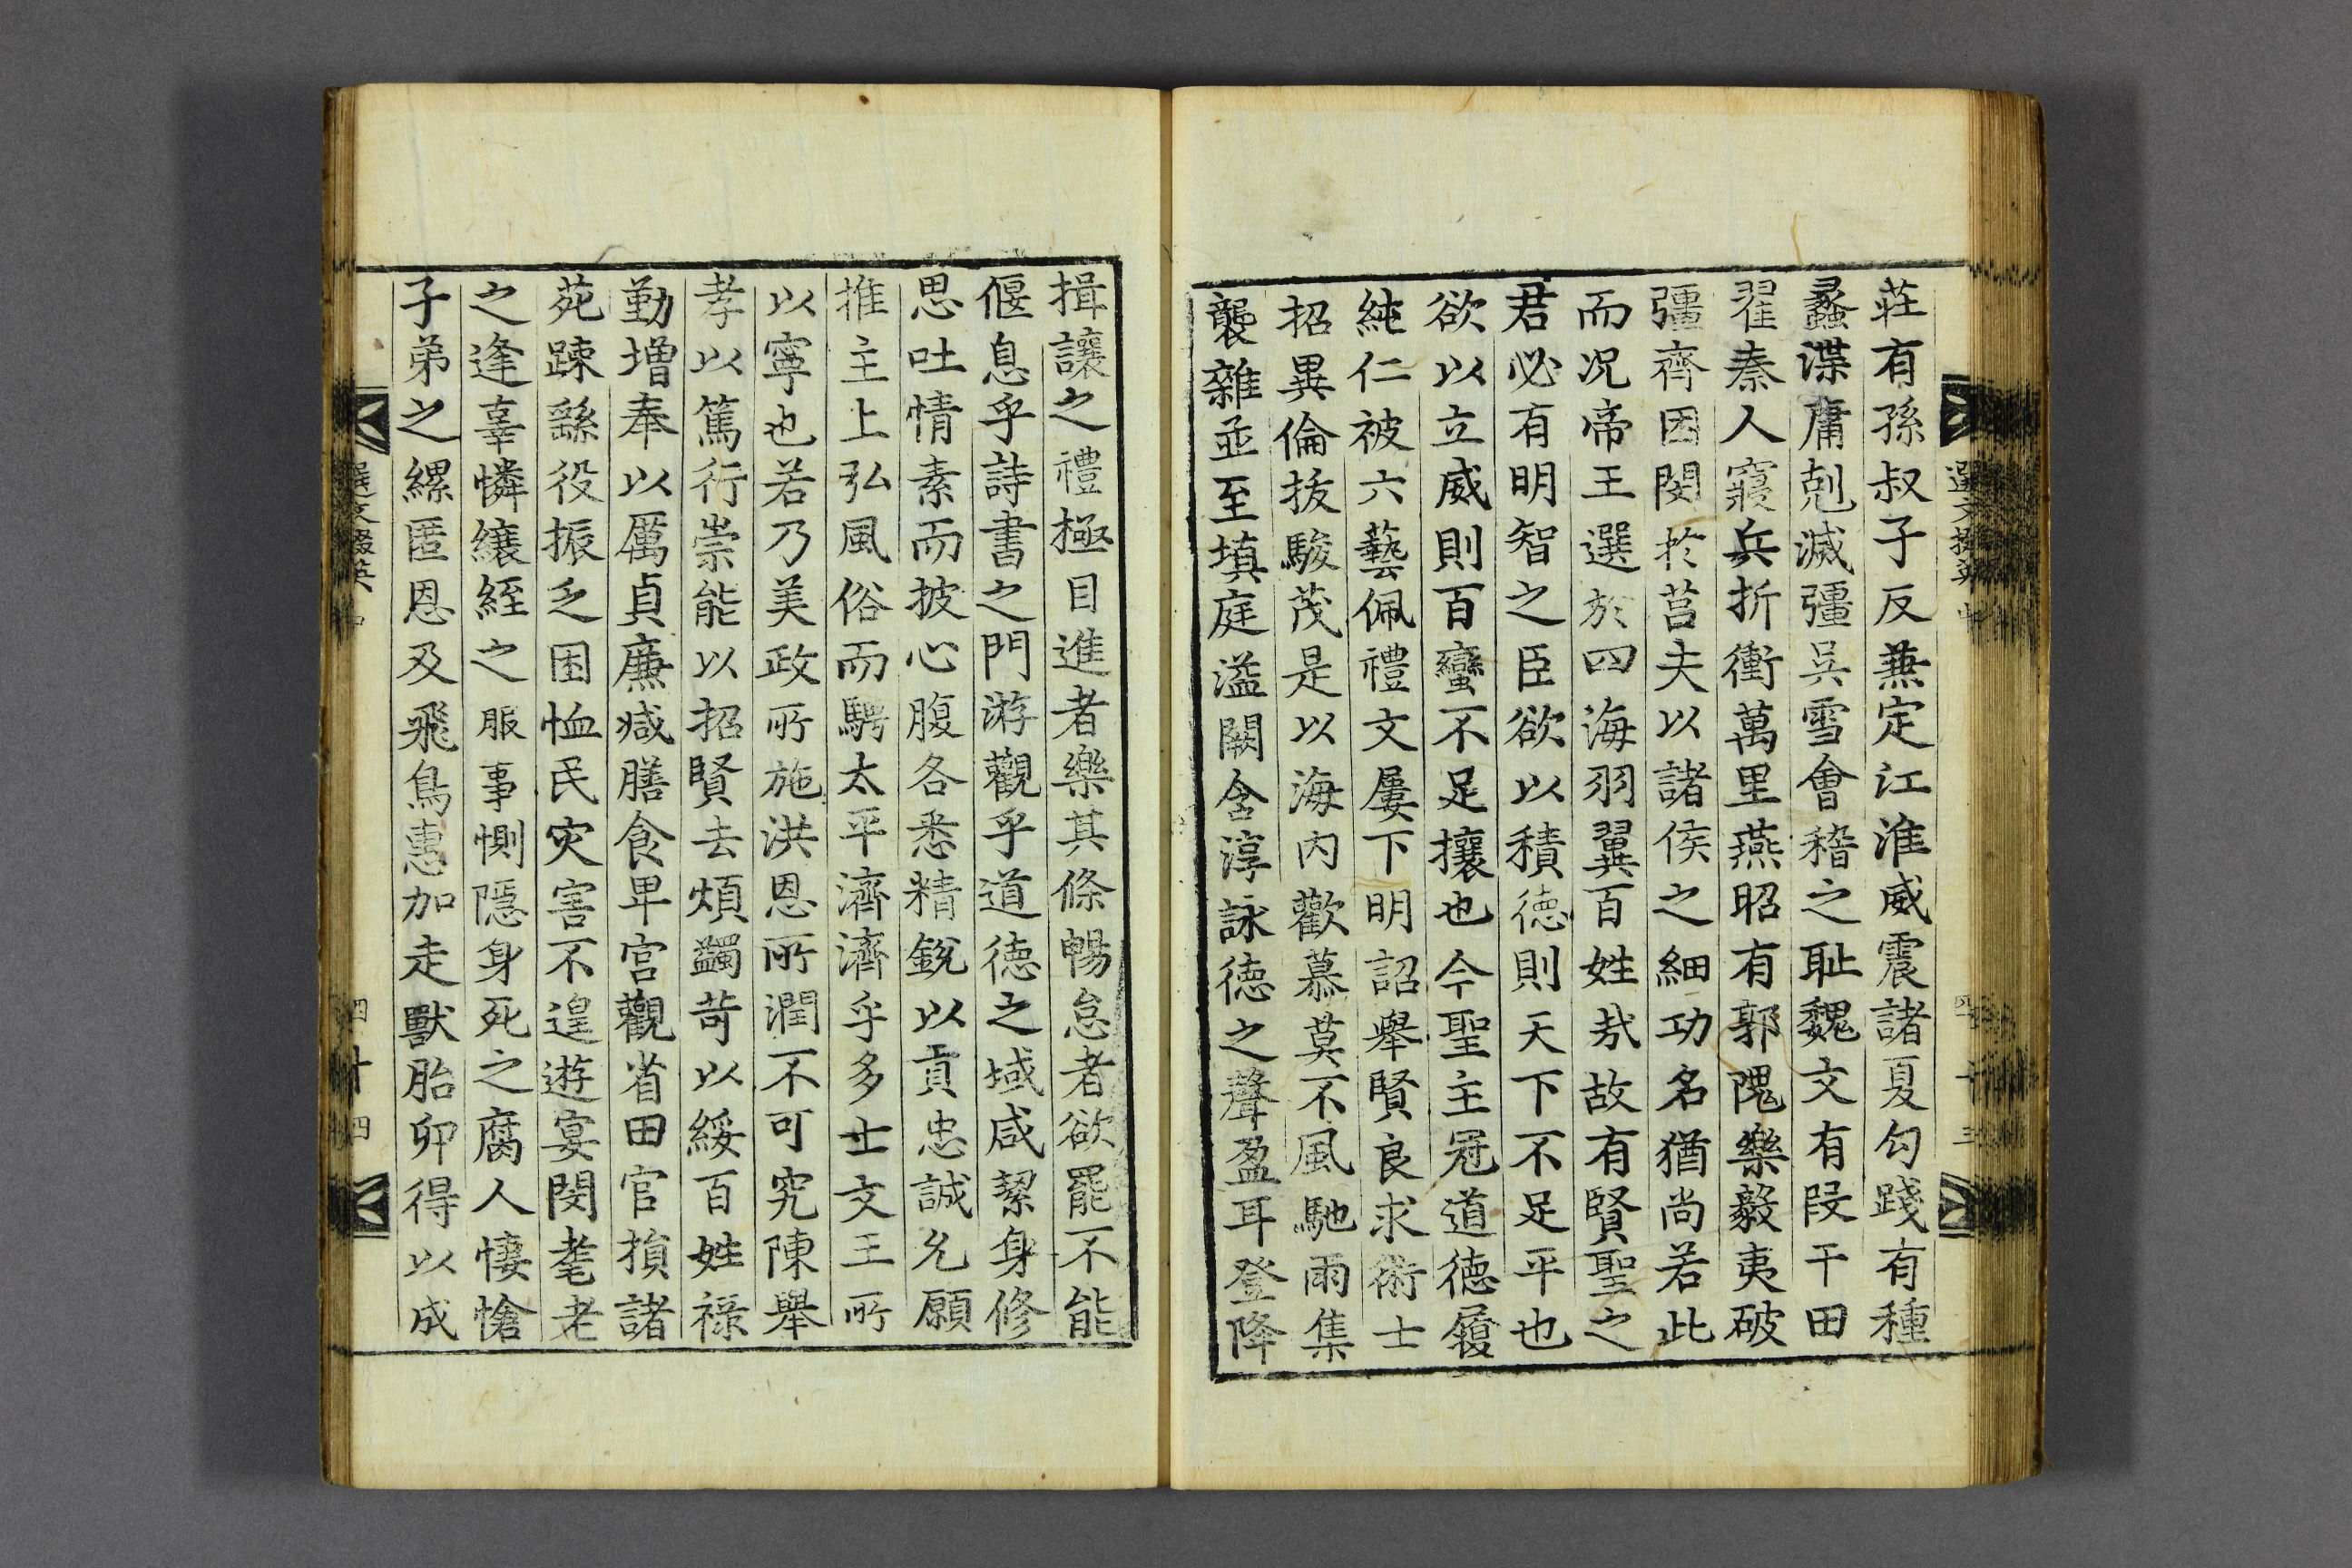 莊有孫叔子反兼定江淮威震諸夏勾踐有種
蠡渫庸剋滅彊吳雪會稽之耻魏文有段干田
翟秦人寢兵折衝萬里燕昭有郭隗樂毅夷破
彊齊困閔於莒夫以諸侯之細功名猶尚若此
而况帝王選於四海羽翼百姓㢤故有賢聖之
君必有明智之臣欲以積德則天下不足平也
欲以立威則百蠻不足攘也今聖主冠道德履
純仁被六藝佩禮文屢下明詔舉賢良求術士
招異倫拔駿茂是以海內歡慕莫不風馳雨集
襲雜並至填庭溢闕含淳詠德之聲盈耳登降
揖讓之禮極目進者樂其條暢怠者欲罷不能
偃息乎詩書之門游觀乎道德之域咸絜身修
思吐情素而披心腹各悉精銳以貢忠誠允願
推主上弘風俗而騁太平濟濟乎多士文王所
以寧也若乃美政所施洪恩所潤不可究陳舉
孝以篤行崇能以招賢去煩蠲苛以綏百姓祿
勤增奉以厲貞廉減膳食卑宮觀省田官損諸
苑踈繇役振乏困恤民灾害不遑遊宴閔耄老
之逢辜憐縗絰之服事惻隱身死之腐人悽愴
子弟之縲匿恩及飛鳥惠加走獸胎卵得以成
選文掇英
十三
選文掇英
十四